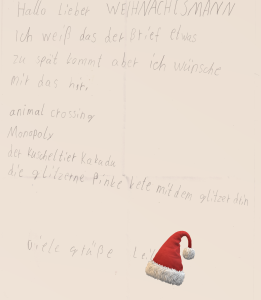 Hallo lieber WEIHNACHTSMANN
Ich weiß das der Brief etwas
zu spät kommt aber ich wünsche
mir das hir:
animal crossing
Monopoly
der Kuscheltier Kakadu
die glitzerne Pinke mit dem glitzer din
Viele grüße